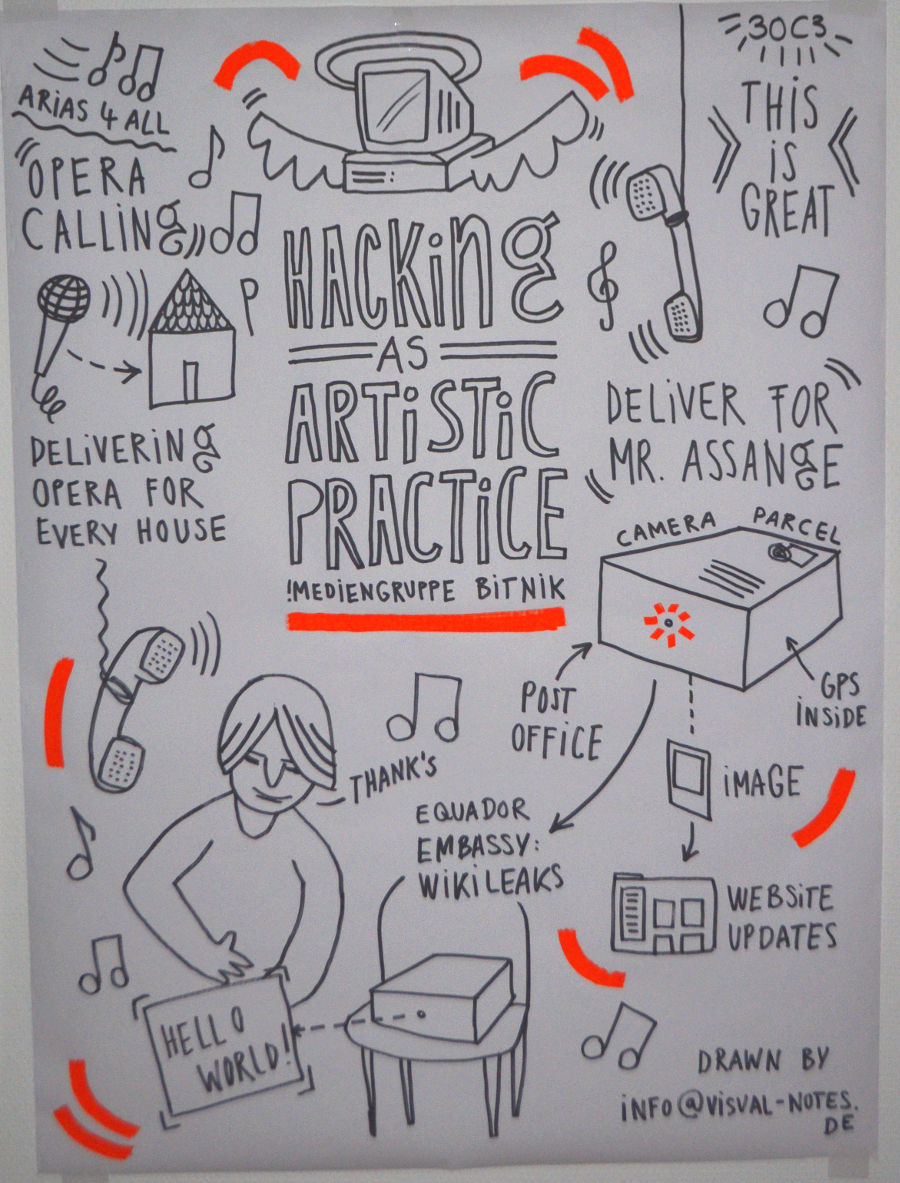 ARiAS 4 ALL
OPERA
CALLiNG
DELiVERiNG
OPERA FOR
EVERY HOUSE
HACKiNG
AS
ARTiSTiC
PRACTiCE
!MEDiENGRUPPE BiTNiK
30C3
THiS
iS
GREAT
DELiVER FOR
MR. ASSANGE
CAMERA PARCEL
POST
OFFiCE
GPS
iNSiDE
iMAGE
WEBSiTE
UPDATES
THANK'S
EQUADOR
EMBASSY:
WiKiLEAKS
HELLO
WORLD!
DRAWN BY
iNFO@ViSVAL-NOTES.
DE